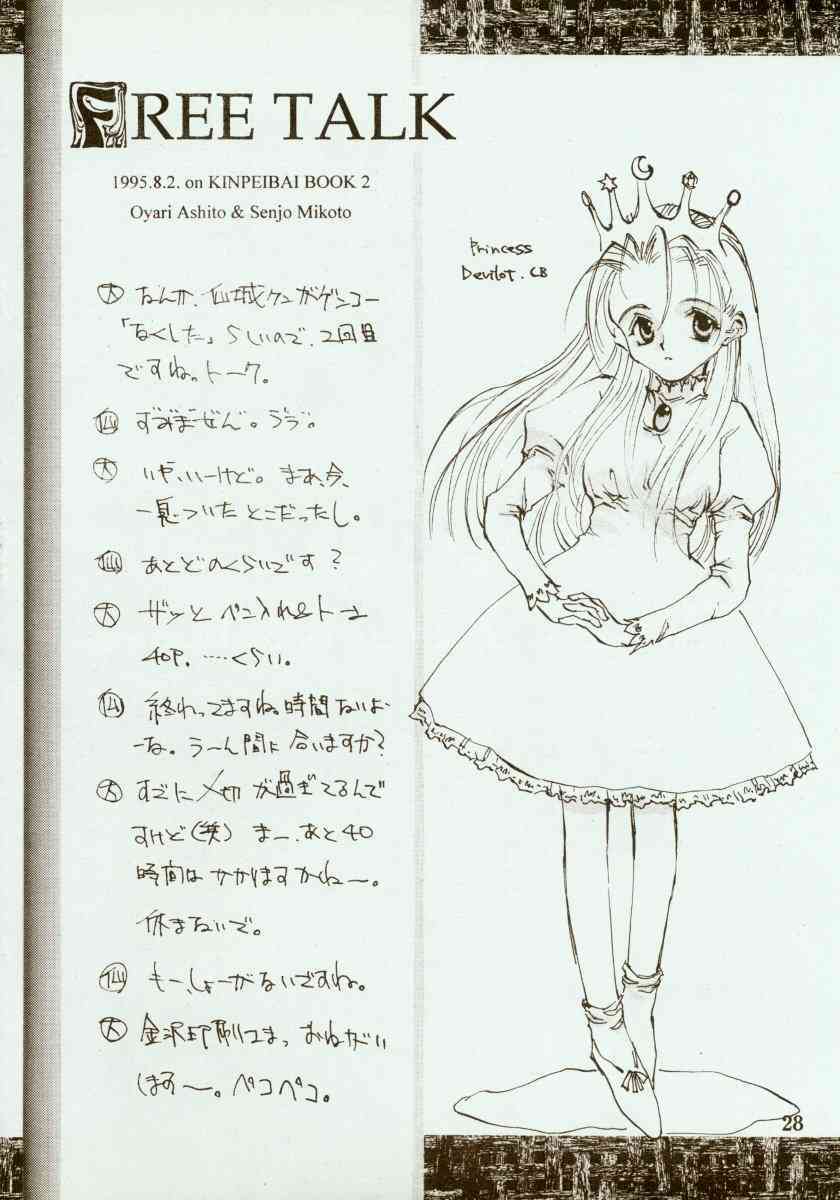 FREE TALK
1995.8.2. on KINPEIBAI BOOK 2
Oyari Ashito & Senjo Mikoto
Princess
Devilot. CB
大 なんか、仙城クンがゲンコー
「なくした」らしいので、2回目
ですね。トーク。
仙 ずみまぜん。
大 いや、いーけど。まあ、今、
一息ついたとこだったし。
仙 あとどのくらいです?
大 ザッと ペン入れ&トーン
40P. ……くらい。
仙 終わってますね。時間ないよ
ーな。うーん間に合いますか?
大 すでに〆切が過ぎてるんで
すけど(笑) まー、あと40
時間は かかりますかね〜。
休まないで。
仙 もー、しょーがないですね。
大 金沢印刷さま、おねがい
します〜。ペコペコ。
28